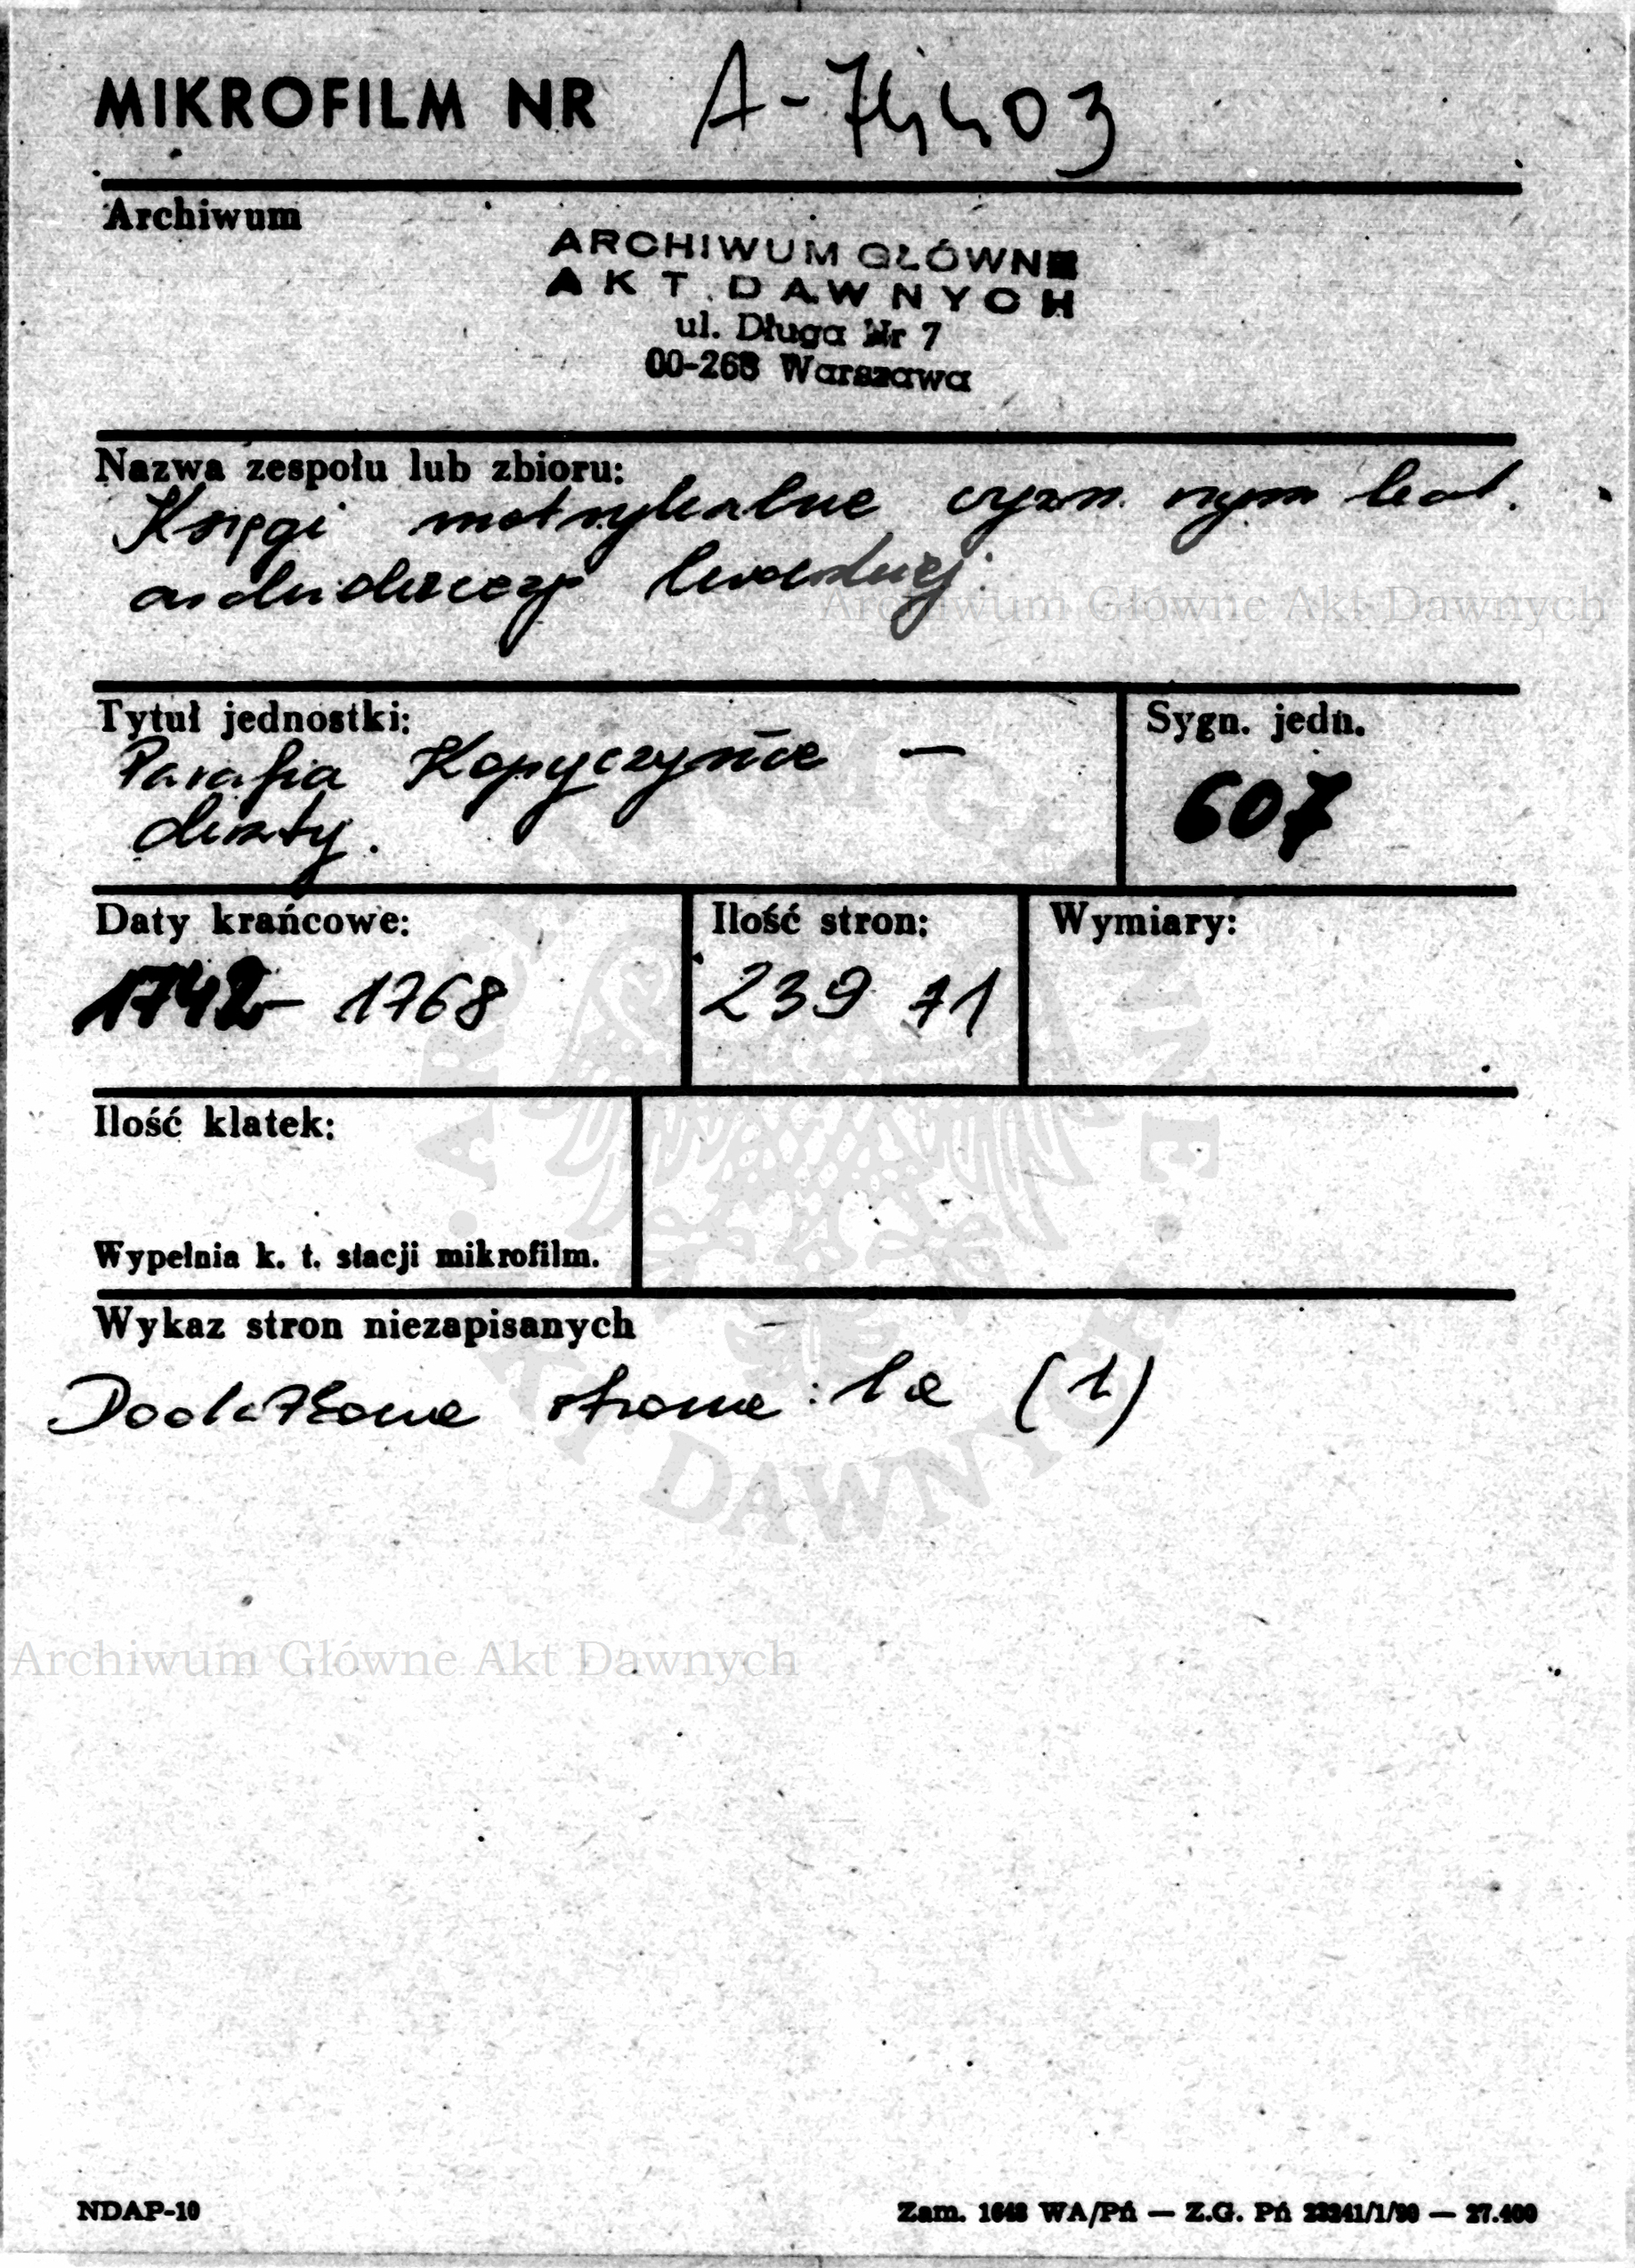 MIKROFILM NR A-74403
Archiwum
ARCHIWUM GŁÓWNE
AKT DAWNYCH
ul. Długa Nr 7
00-263 Warszawa
Nazwa zespołu lub zbioru:
Księgi metrykalne wyzn. rzym kat.
archidiecezji lwowskiej
Archiwum Główne Akt Dawnych
Tytuł jednostki:
Parafia Kopyczyńce —
chrzty.
Sygn. jedn.
607
Daty krańcowe:
1742- 1768
Ilość stron:
239 +1
Wymiary:
Ilość klatek:
Wypełnia k. t. stacji mikrofilm.
Wykaz stron niezapisanych
Dodatkowe strone: 1a (1)
ARCHIWUM GŁÓWNE · AKT DAWNYCH ·
Archiwum Główne Akt Dawnych
NDAP-10
Zam. 1648 WA/Pń — Z.G. Pń 23241/1/90 — 27.400